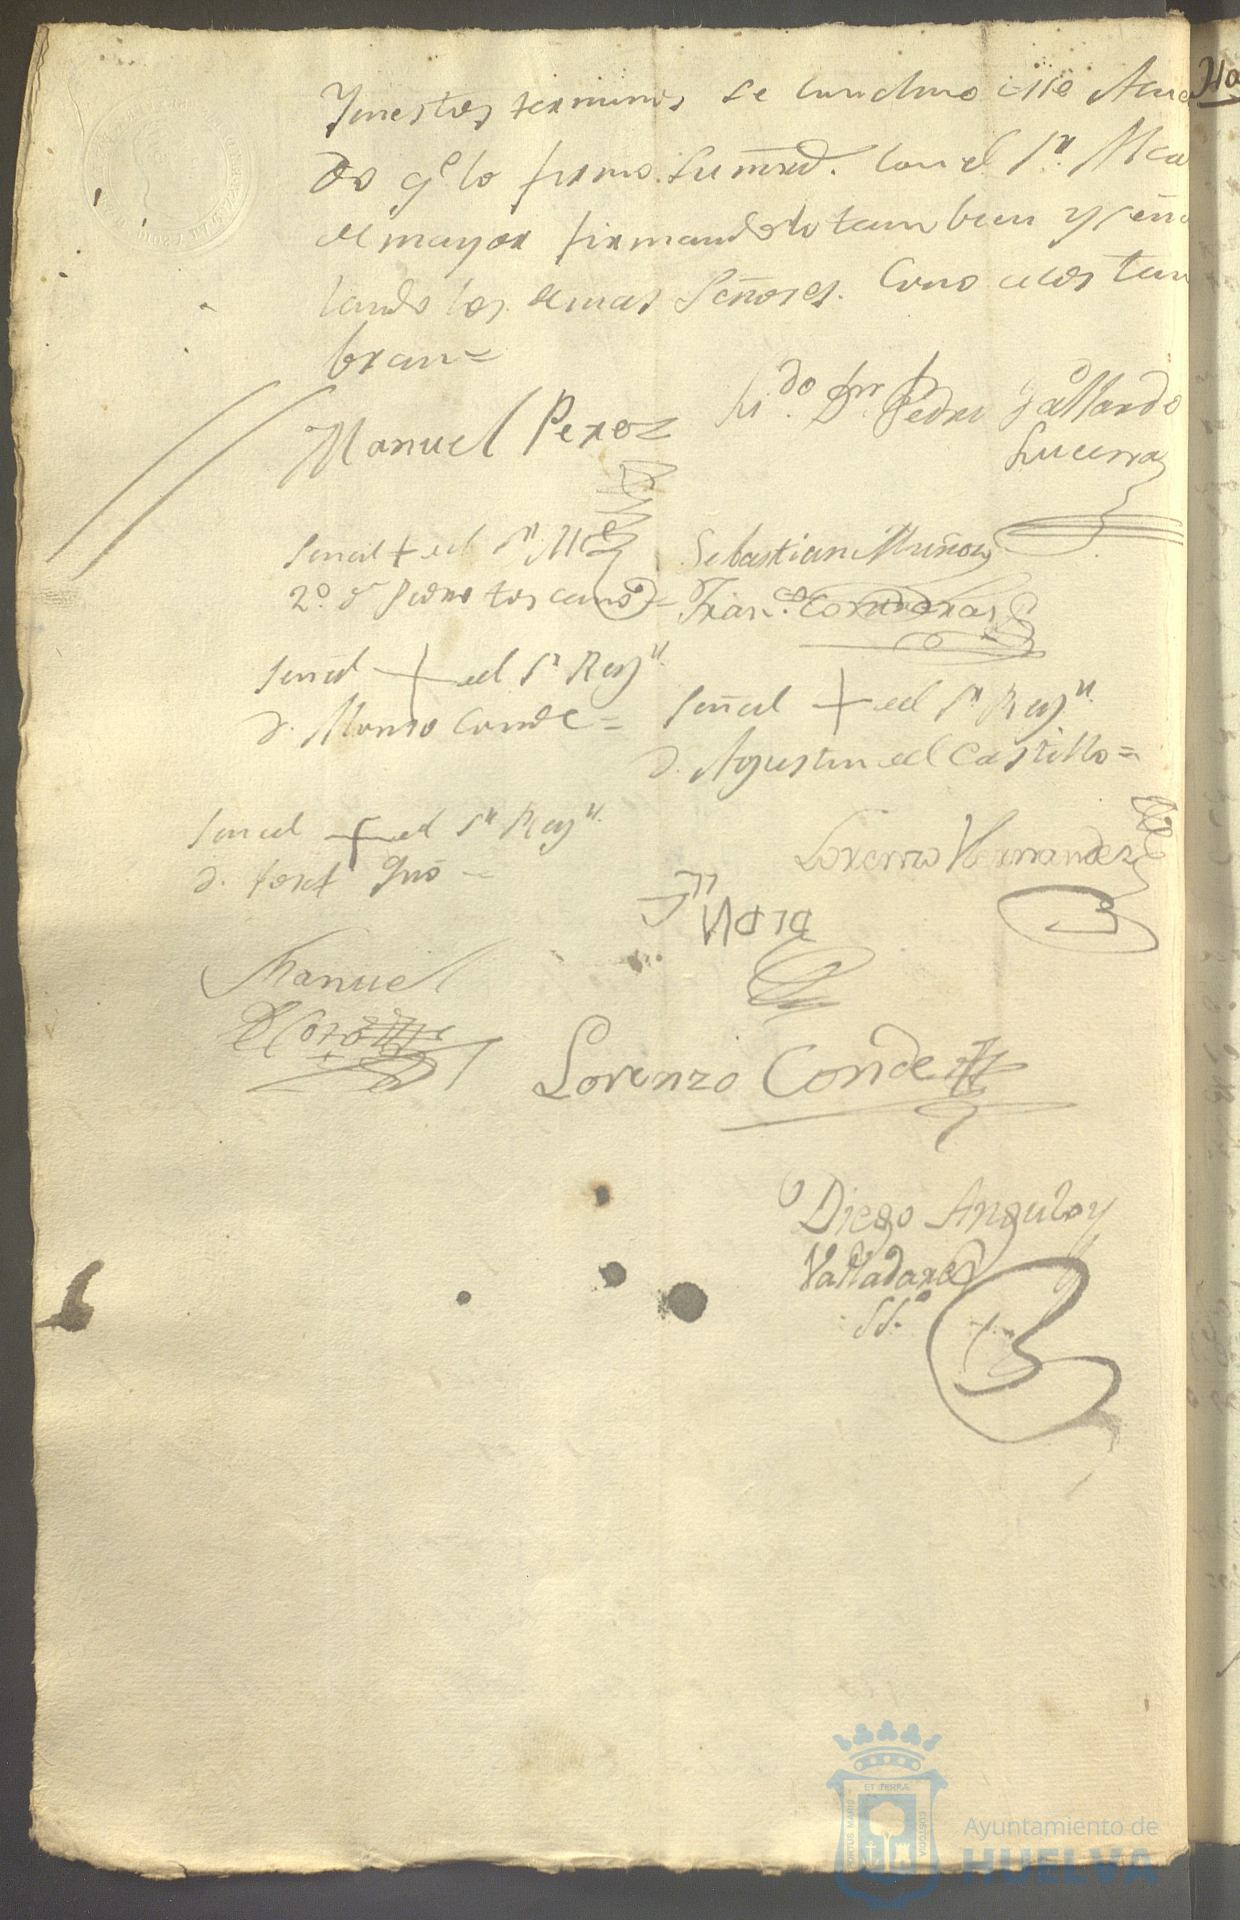 Yenestos terminos se concluio este Acuer
do qe. lo firmo su mrd. con el Sr. Alcal
de mayor firmandolo tambien y señа
lando los demas Señores. Como acostum
bran=
Manuel Perez
Lido. Dn. Pedro Gallardo
Lucena
señal + del Sr. Alce.
2º. d. Pedro toscano=
Sebastian Muñoz
Franco. Contreras
señal + del Sr. Rexr.
d. Alonso Conde=
Señal + del Sr. Rexr.
d. Agustin del Castillo=
señal + del Sr. Rexr.
Lorenzo Hernandez
Manuel
Lorenzo Conde
Diego Angulo y
Valladares
SSº.
Ayuntamiento de
HUELVA